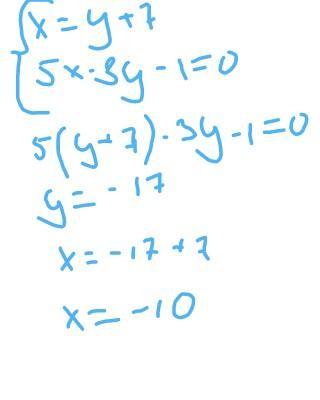 x = y + 7
5x - 3y - 1 = 0
5(y + 7) - 3y - 1 = 0
y = - 17
x = - 17 + 7
x = - 10